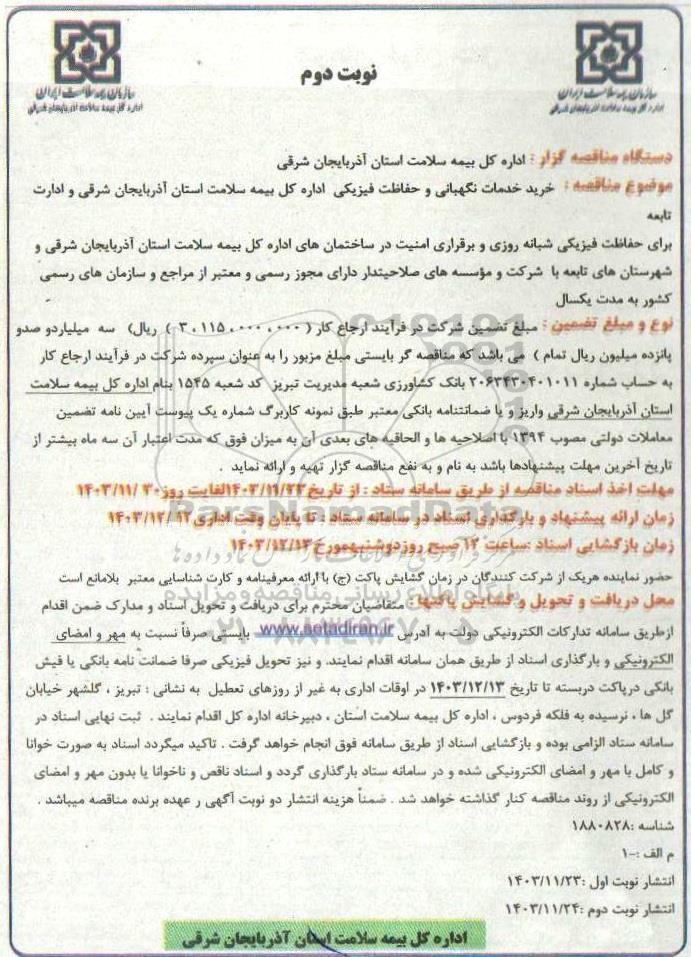 نوبت دوم
سازمان بیمه سلامت ایران
اداره کل بیمه سلامت آذربایجان شرقی
سازمان بیمه سلامت ایران
اداره کل بیمه سلامت آذربایجان شرقی
دستگاه مناقصه گزار : اداره کل بیمه سلامت استان آذربایجان شرقی
موضوع مناقصه : خرید خدمات نگهبانی و حفاظت فیزیکی اداره کل بیمه سلامت استان آذربایجان شرقی و ادارت
تابعه
برای حفاظت فیزیکی شبانه روزی و برقراری امنیت در ساختمان های اداره کل بیمه سلامت استان آذربایجان شرقی و
شهرستان های تابعه با شرکت و مؤسسه های صلاحیتدار دارای مجوز رسمی و معتبر از مراجع و سازمان های رسمی
کشور به مدت یکسال
نوع و مبلغ تضمین : مبلغ تضمین شرکت در فرآیند ارجاع کار ( ۳،۱۱۵،۰۰۰،۰۰۰ ) ریال) سه میلیاردو صدو
پانزده میلیون ریال تمام ) می باشد که مناقصه گر بایستی مبلغ مزبور را به عنوان سپرده شرکت در فرآیند ارجاع کار
به حساب شماره ۲۰۶۳۴۳۰۴۰۱۰۱۱ بانک کشاورزی شعبه مدیریت تبریز کد شعبه ۱۵۴۵ بنام اداره کل بیمه سلامت
استان آذربایجان شرقی واریز و یا ضمانتنامه بانکی معتبر طبق نمونه کاربرگ شماره یک پیوست آیین نامه تضمین
معاملات دولتی مصوب ۱۳۹۴ با اصلاحیه ها و الحاقیه های بعدی آن به میزان فوق که مدت اعتبار آن سه ماه بیشتر از
تاریخ آخرین مهلت پیشنهادها باشد به نام و به نفع مناقصه گزار تهیه و ارائه نماید .
مهلت اخذ اسناد مناقصه از طریق سامانه ستاد : از تاریخ ۱۴۰۳/۱۱/۲۳ لغایت روز ۳۰ /۱۴۰۳/۱۱
زمان ارائه پیشنهاد و بارگذاری اسناد در سامانه ستاد : تا پایان وقت اداری ۱۲ /۱۴۰۳/۱۲
زمان بازگشایی اسناد :ساعت ۱۲ صبح روزدوشنبهمورخ ۱۴۰۳/۱۲/۱۳
حضور نماینده هریک از شرکت کنندگان در زمان گشایش پاکت (ج) با ارائه معرفینامه و کارت شناسایی معتبر بلامانع است
محل دریافت و تحویل و گشایش پاکتها : متقاضیان محترم برای دریافت و تحویل اسناد و مدارک ضمن اقدام
ازطریق سامانه تدارکات الکترونیکی دولت به آدرس www.setadiran.ir بایستی صرفاً نسبت به مهر و امضای
الکترونیکی و بارگذاری اسناد از طریق همان سامانه اقدام نمایند. و نیز تحویل فیزیکی صرفا ضمانت نامه بانکی یا فیش
بانکی درپاکت دربسته تا تاریخ ۱۴۰۳/۱۲/۱۳ در اوقات اداری به غیر از روزهای تعطیل به نشانی : تبریز ، گلشهر خیابان
گل ها ، نرسیده به فلکه فردوس ، اداره کل بیمه سلامت استان ، دبیرخانه اداره کل اقدام نمایند . ثبت نهایی اسناد در
سامانه ستاد الزامی بوده و بازگشایی اسناد از طریق سامانه فوق انجام خواهد گرفت . تاکید میگردد اسناد به صورت خوانا
و کامل با مهر و امضای الکترونیکی شده و در سامانه ستاد بارگذاری گردد و اسناد ناقص و ناخوانا یا بدون مهر و امضای
الکترونیکی از روند مناقصه کنار گذاشته خواهد شد . ضمناً هزینه انتشار دو نوبت آگهی ر عهده برنده مناقصه میباشد .
شناسه :۱۸۸۰۸۲۸
م الف :-۱
انتشار نوبت اول :۱۴۰۳/۱۱/۲۳
انتشار نوبت دوم :۱۴۰۳/۱۱/۲۴
اداره کل بیمه سلامت استان آذربایجان شرقی
ParsNamadData
پایگاه اطلاع رسانی مناقصه و مزایده